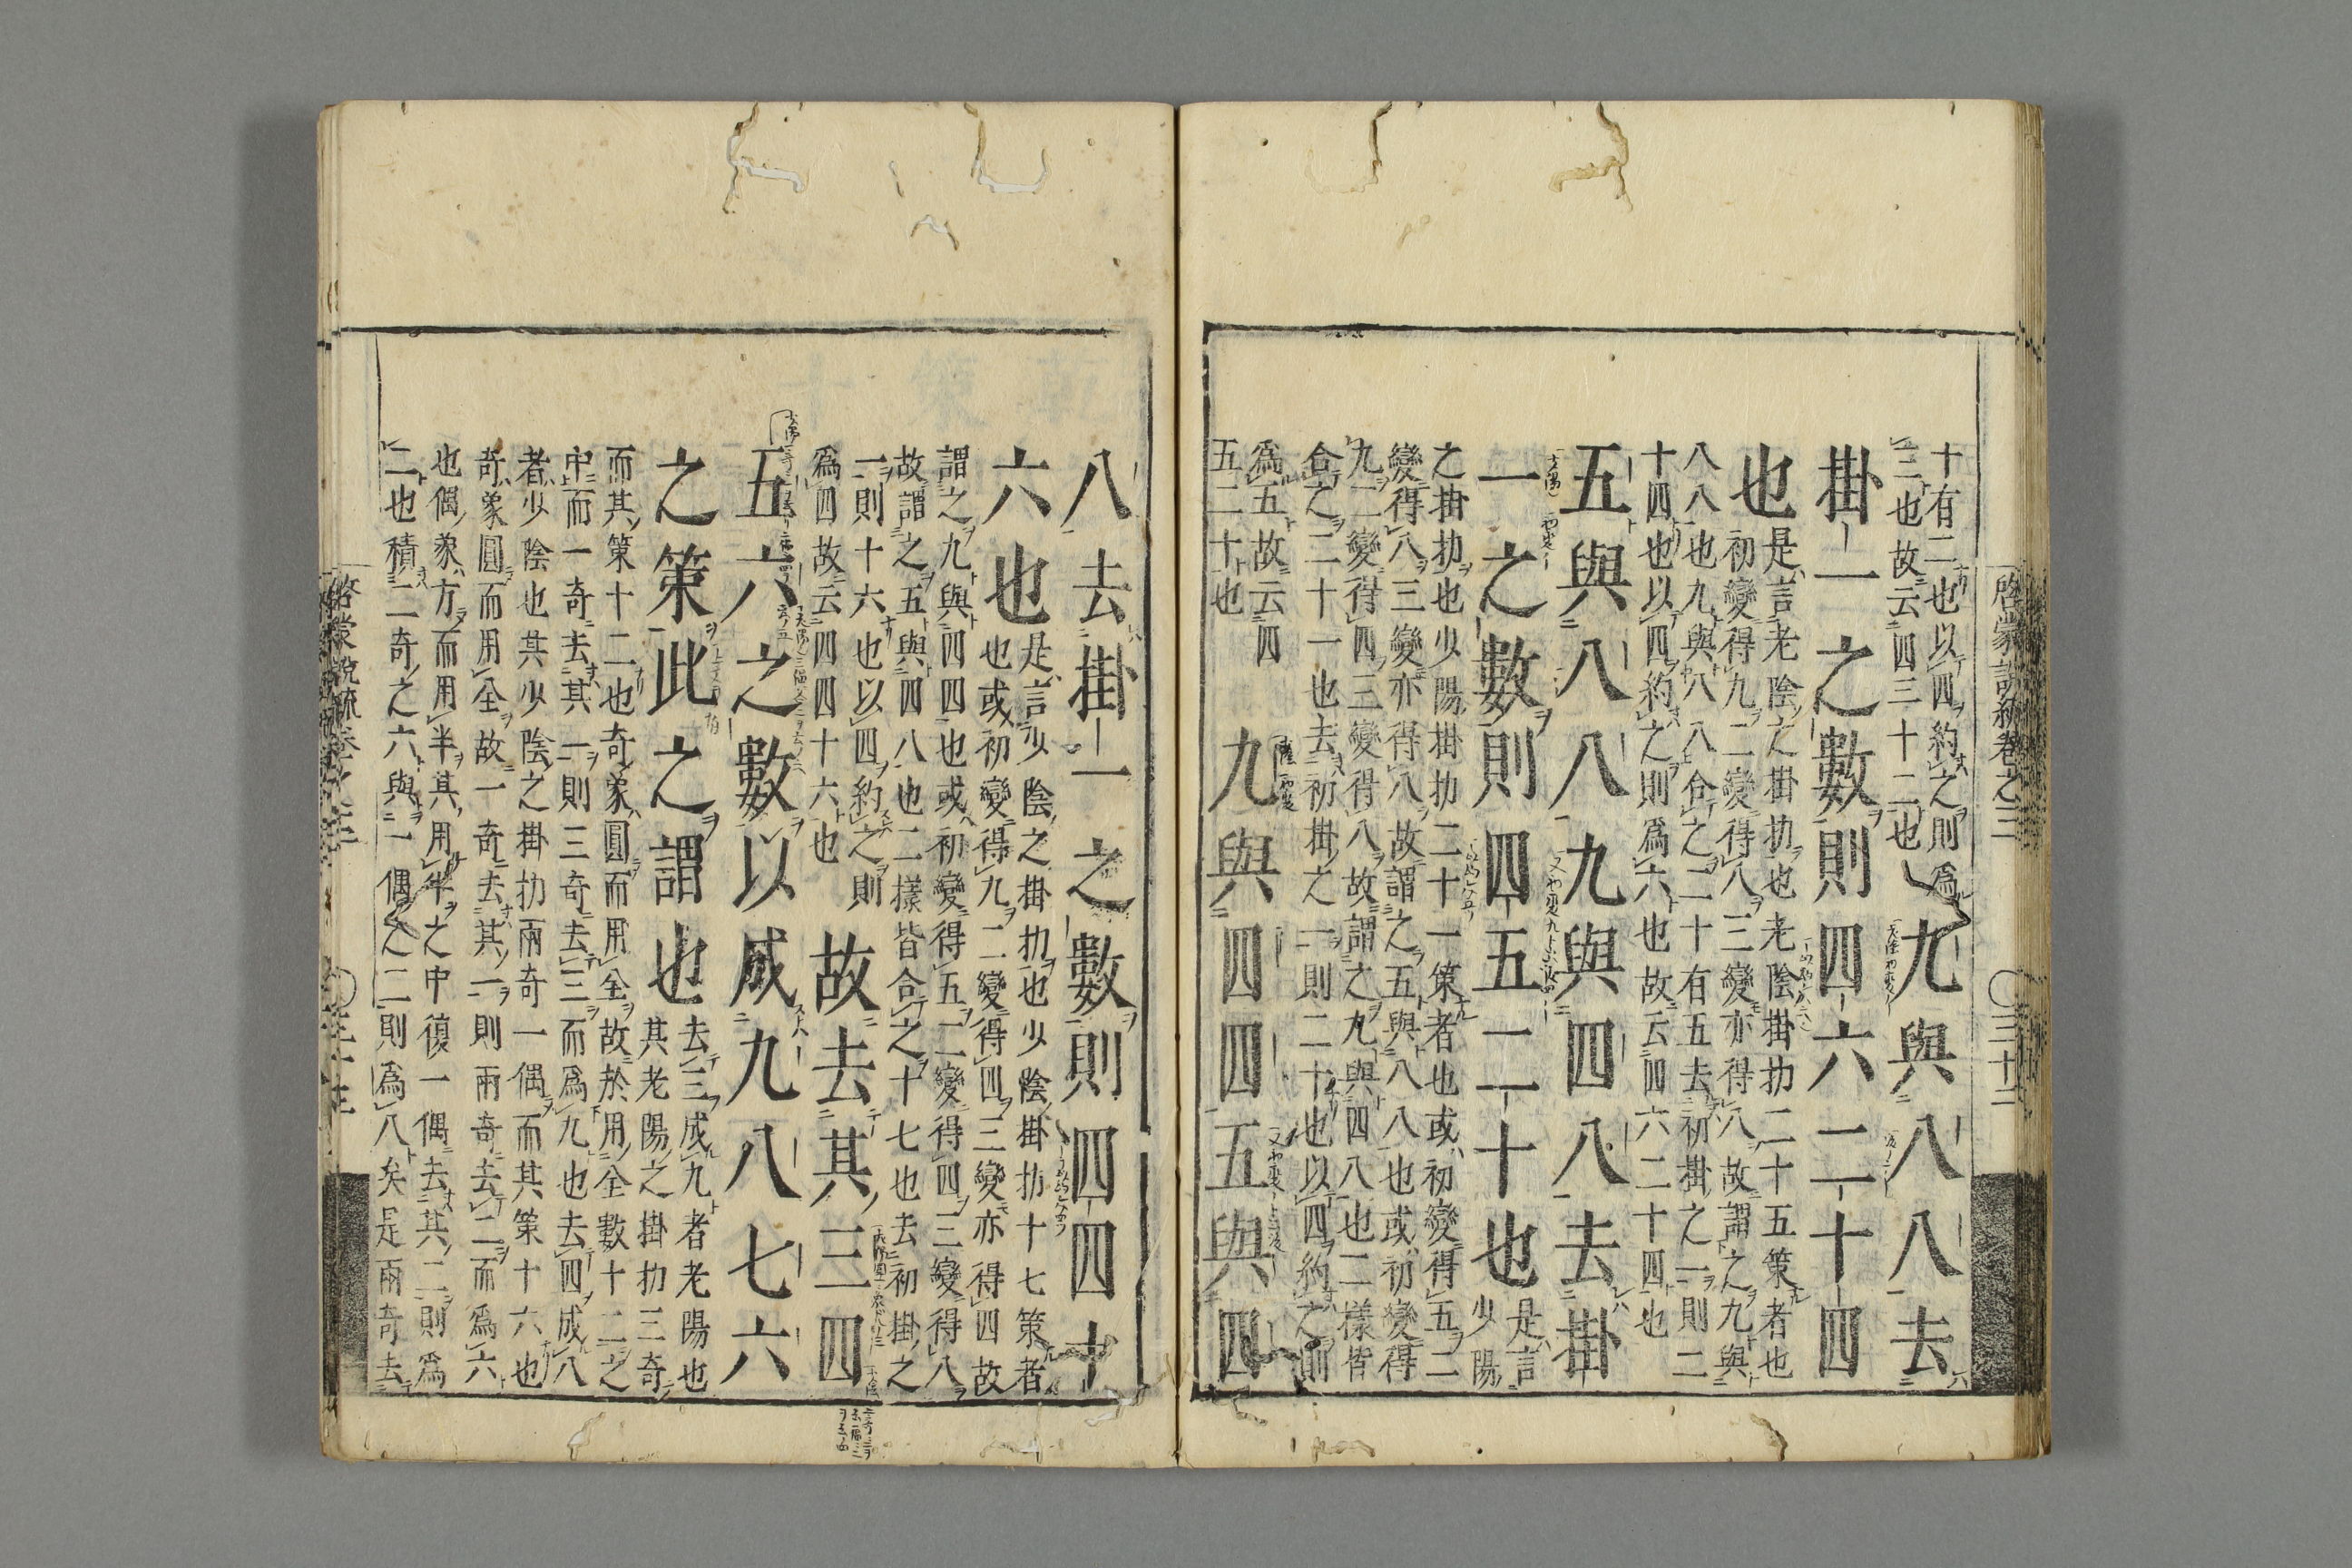 十有二也以四約之則爲
三也故云四三十二也
九與八八去
掛一之數則四六二十四
也
是言老陰之掛扐也老陰掛扐二十五策者也
初變得九二變得八三變亦得八故謂之九與
八八也九與八八合之二十有五去初掛之一則二
十四也以四約之則爲六也故云四六二十四也
五與八八九與四八去掛
一之數則四五二十也
是言少陽
之掛扐也少陽掛扐二十一策者也或初變得五二
變得八三變亦得八故謂之五與八八也或初變得
九二變得四三變得八故謂之九與四八也二樣皆
合之二十一也去初掛之一則二十也以四約之則
爲五故云四
五二十也
九與四四五與四
八去掛一之數則四四十
六也
是言少陰之掛扐也少陰掛扐十七策者
也或初變得九二變得四三變亦得四故
謂之九與四四也或初變得五二變得四三變得八
故謂之五與四八也二樣皆合之十七也去初掛之
一則十六也以四約之則
爲四故云四四十六也
故去其三四
五六之數以成九八七六
之策此之謂也
去三成九者老陽也
其老陽之掛扐三奇
而其策十二也奇象圓而用全故於用全數十二之
中而一奇去其一則三奇去三而爲九也去四成八
者少陰也其少陰之掛扐兩奇一偶而其策十六也
奇象圓而用全故一奇去其一則兩奇去二而爲六
也偶象方而用半其用半之中復一偶去其二則爲
二也積二奇之六與一偶之二則爲八矣是兩奇去